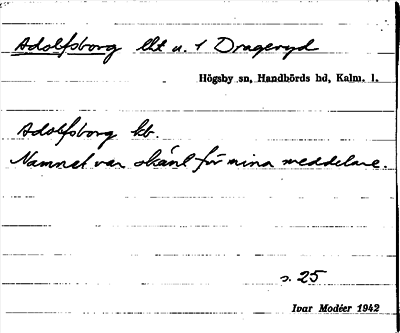 Adolfsborg llt u. 1 Drageryd
Högsby sn, Handbörds hd, Kalm. l.
Adolfsborg kb.
Namnet var okänt för mina meddelare.
s. 25
Ivar Modéer 1942